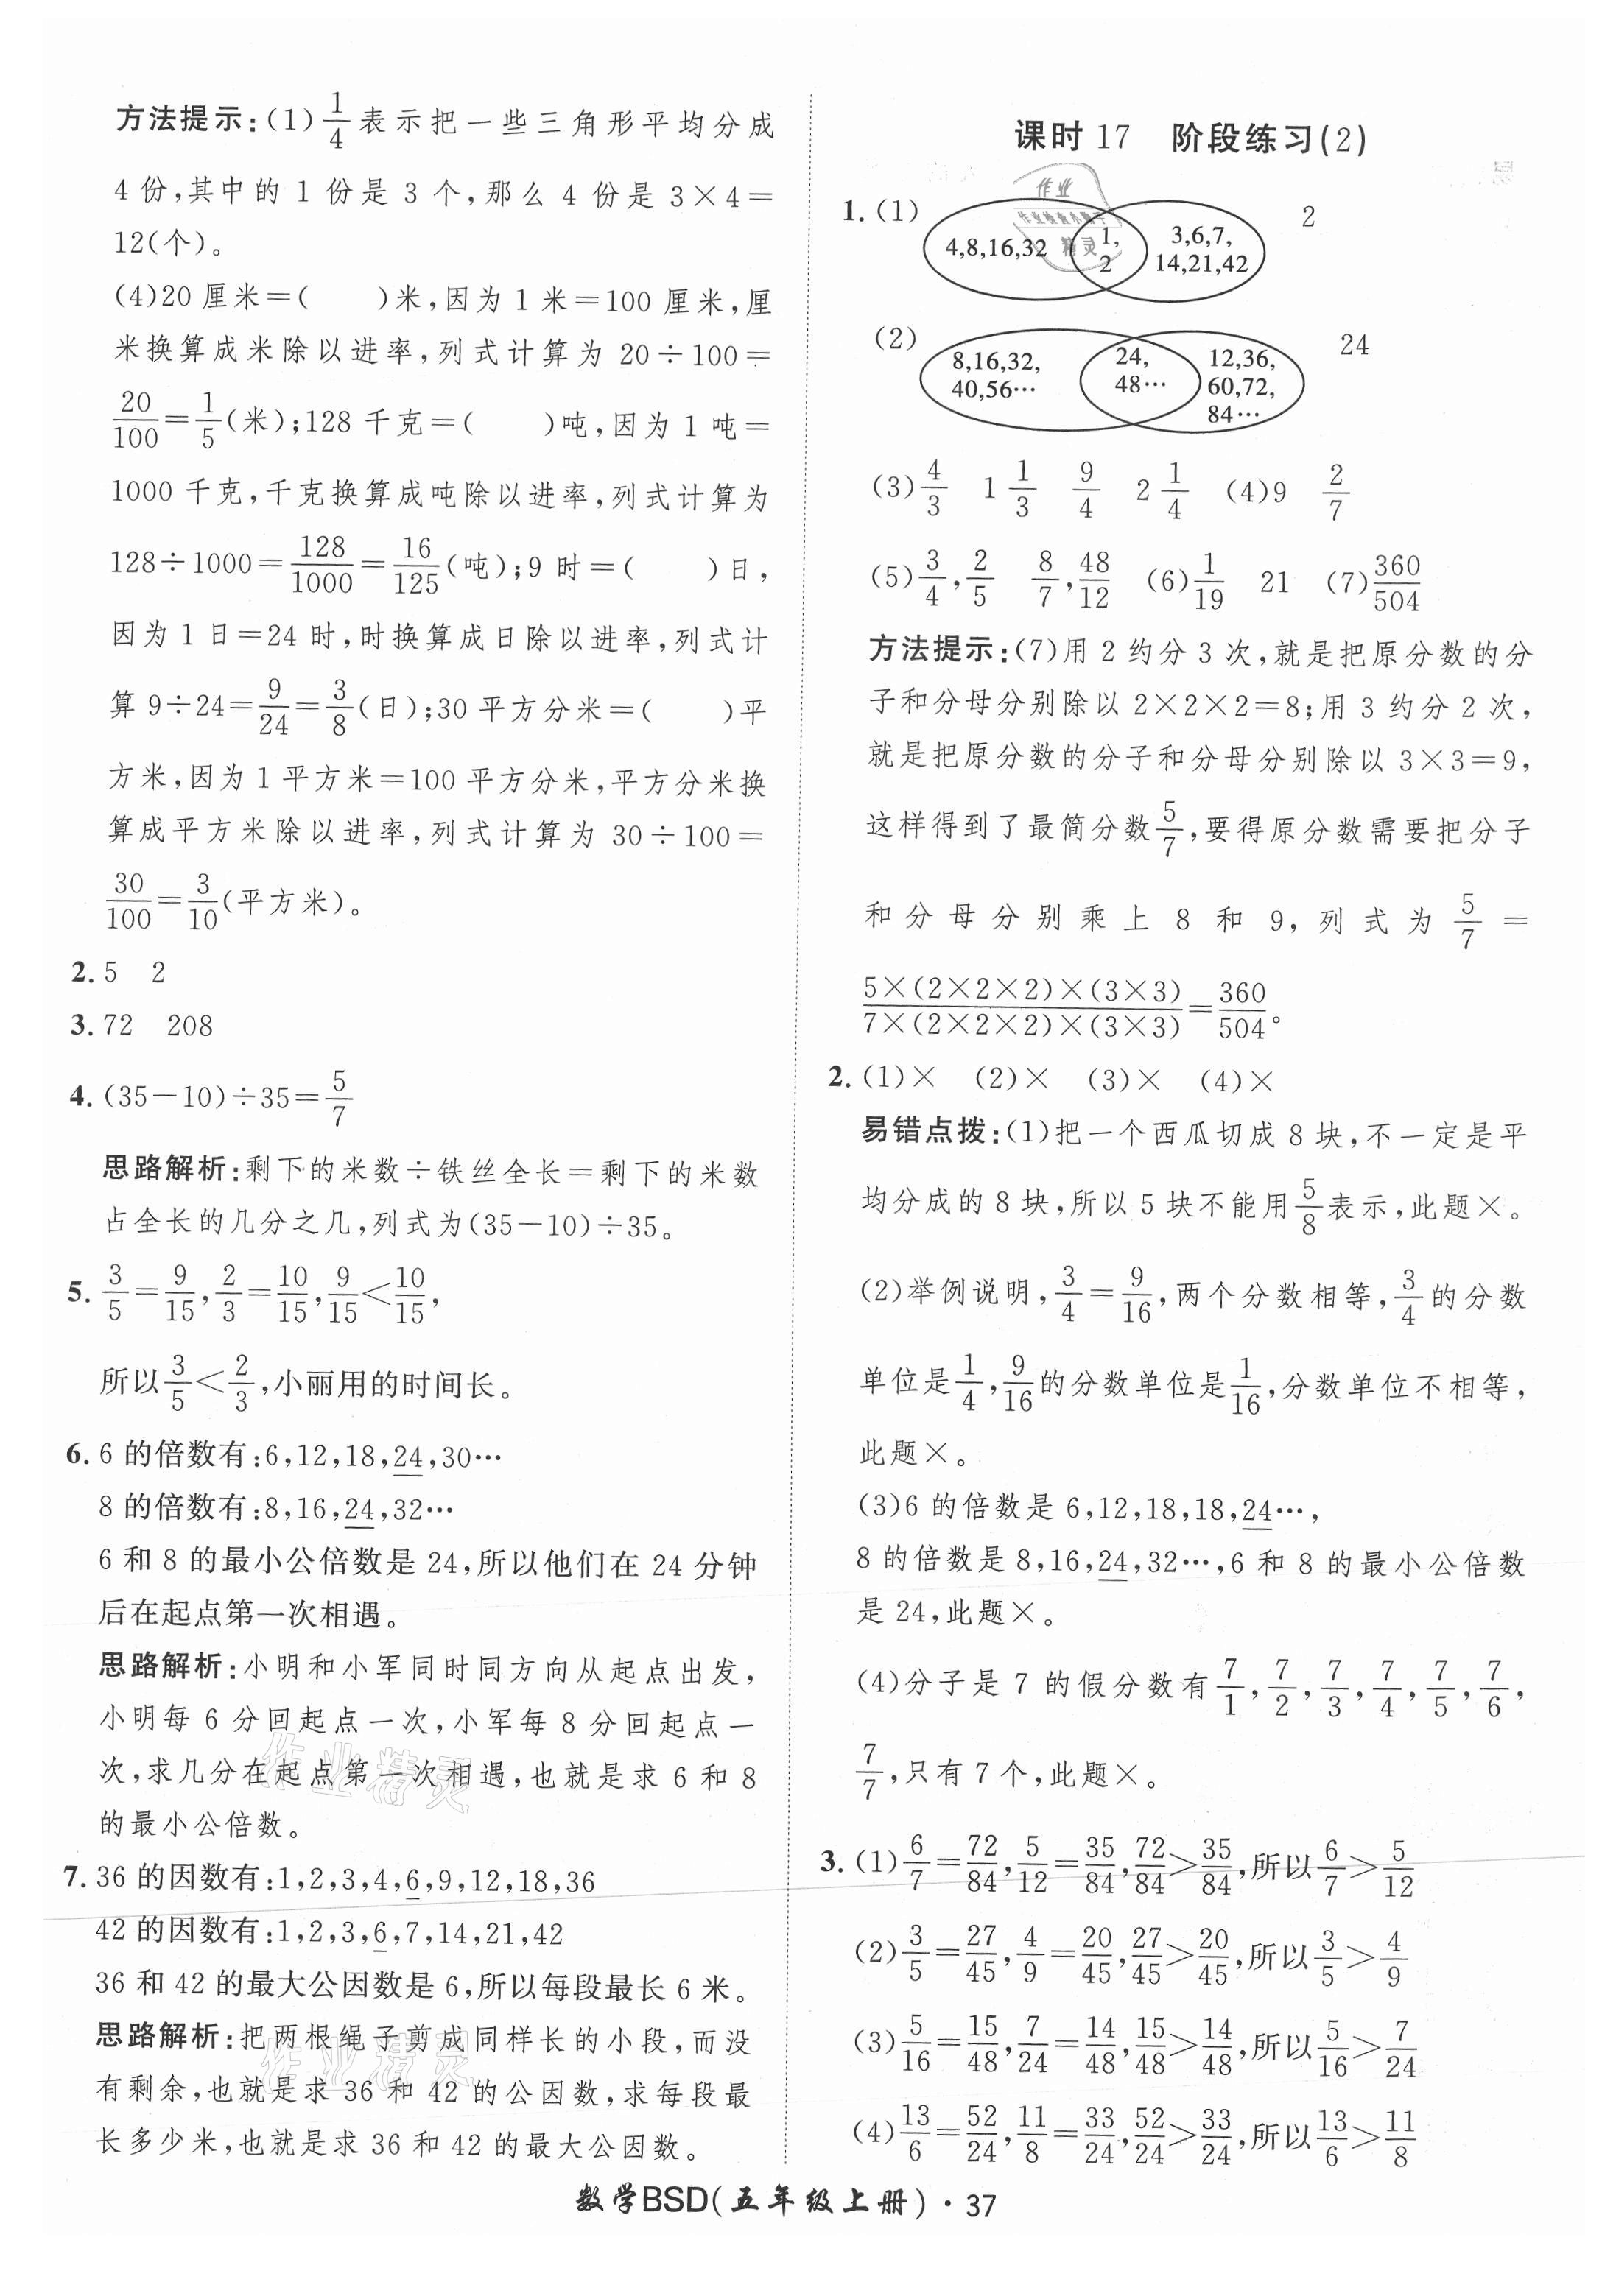 方法提示:(1)1/4表示把一些三角形平均分成
4份,其中的1份是3个,那么4份是3×4=
12(个)。
(4)20厘米=(　　)米,因为1米=100厘米,厘
米换算成米除以进率,列式计算为20÷100=
20/100=1/5(米);128千克=(　　)吨,因为1吨=
1000千克,千克换算成吨除以进率,列式计算为
128÷1000=128/1000=16/125(吨);9时=(　　)日,
因为1日=24时,时换算成日除以进率,列式计
算9÷24=9/24=3/8(日);30平方分米=(　　)平
方米,因为1平方米=100平方分米,平方分米换
算成平方米除以进率,列式计算为30÷100=
30/100=3/10(平方米)。
2. 5　2
3. 72　208
4. (35-10)÷35=5/7
思路解析:剩下的米数÷铁丝全长=剩下的米数
占全长的几分之几,列式为(35-10)÷35。
5. 3/5=9/15,2/3=10/15,9/15<10/15,
所以3/5<2/3,小丽用的时间长。
6. 6的倍数有:6,12,18,24,30…
8的倍数有:8,16,24,32…
6和8的最小公倍数是24,所以他们在24分钟
后在起点第一次相遇。
思路解析:小明和小军同时同方向从起点出发,
小明每6分回起点一次,小军每8分回起点一
次,求几分在起点第一次相遇,也就是求6和8
的最小公倍数。
7. 36的因数有:1,2,3,4,6,9,12,18,36
42的因数有:1,2,3,6,7,14,21,42
36和42的最大公因数是6,所以每段最长6米。
思路解析:把两根绳子剪成同样长的小段,而没
有剩余,也就是求36和42的公因数,求每段最
长多少米,也就是求36和42的最大公因数。
课时17　阶段练习(2)
1. (1) 4,8,16,32　1,2　3,6,7,14,21,42　2
(2) 8,16,32,40,56…　24,48…　12,36,60,72,84…　24
(3)4/3　1 1/3　9/4　2 1/4　(4)9　2/7
(5)3/4,2/5　8/7,48/12　(6)1/19　21　(7)360/504
方法提示:(7)用2约分3次,就是把原分数的分
子和分母分别除以2×2×2=8;用3约分2次,
就是把原分数的分子和分母分别除以3×3=9,
这样得到了最简分数5/7,要得原分数需要把分子
和分母分别乘上8和9,列式为5/7=
5×(2×2×2)×(3×3)/7×(2×2×2)×(3×3)=360/504。
2. (1)×　(2)×　(3)×　(4)×
易错点拨:(1)把一个西瓜切成8块,不一定是平
均分成的8块,所以5块不能用5/8表示,此题×。
(2)举例说明,3/4=9/16,两个分数相等,3/4的分数
单位是1/4,9/16的分数单位是1/16,分数单位不相等,
此题×。
(3)6的倍数是6,12,18,18,24…,
8的倍数是8,16,24,32…,6和8的最小公倍数
是24,此题×。
(4)分子是7的假分数有7/1,7/2,7/3,7/4,7/5,7/6,
7/7,只有7个,此题×。
3. (1)6/7=72/84,5/12=35/84,72/84>35/84,所以6/7>5/12
(2)3/5=27/45,4/9=20/45,27/45>20/45,所以3/5>4/9
(3)5/16=15/48,7/24=14/48,15/48>14/48,所以5/16>7/24
(4)13/6=52/24,11/8=33/24,52/24>33/24,所以13/6>11/8
数学BSD(五年级上册)·37
作业精灵
作业精灵
作业
精灵